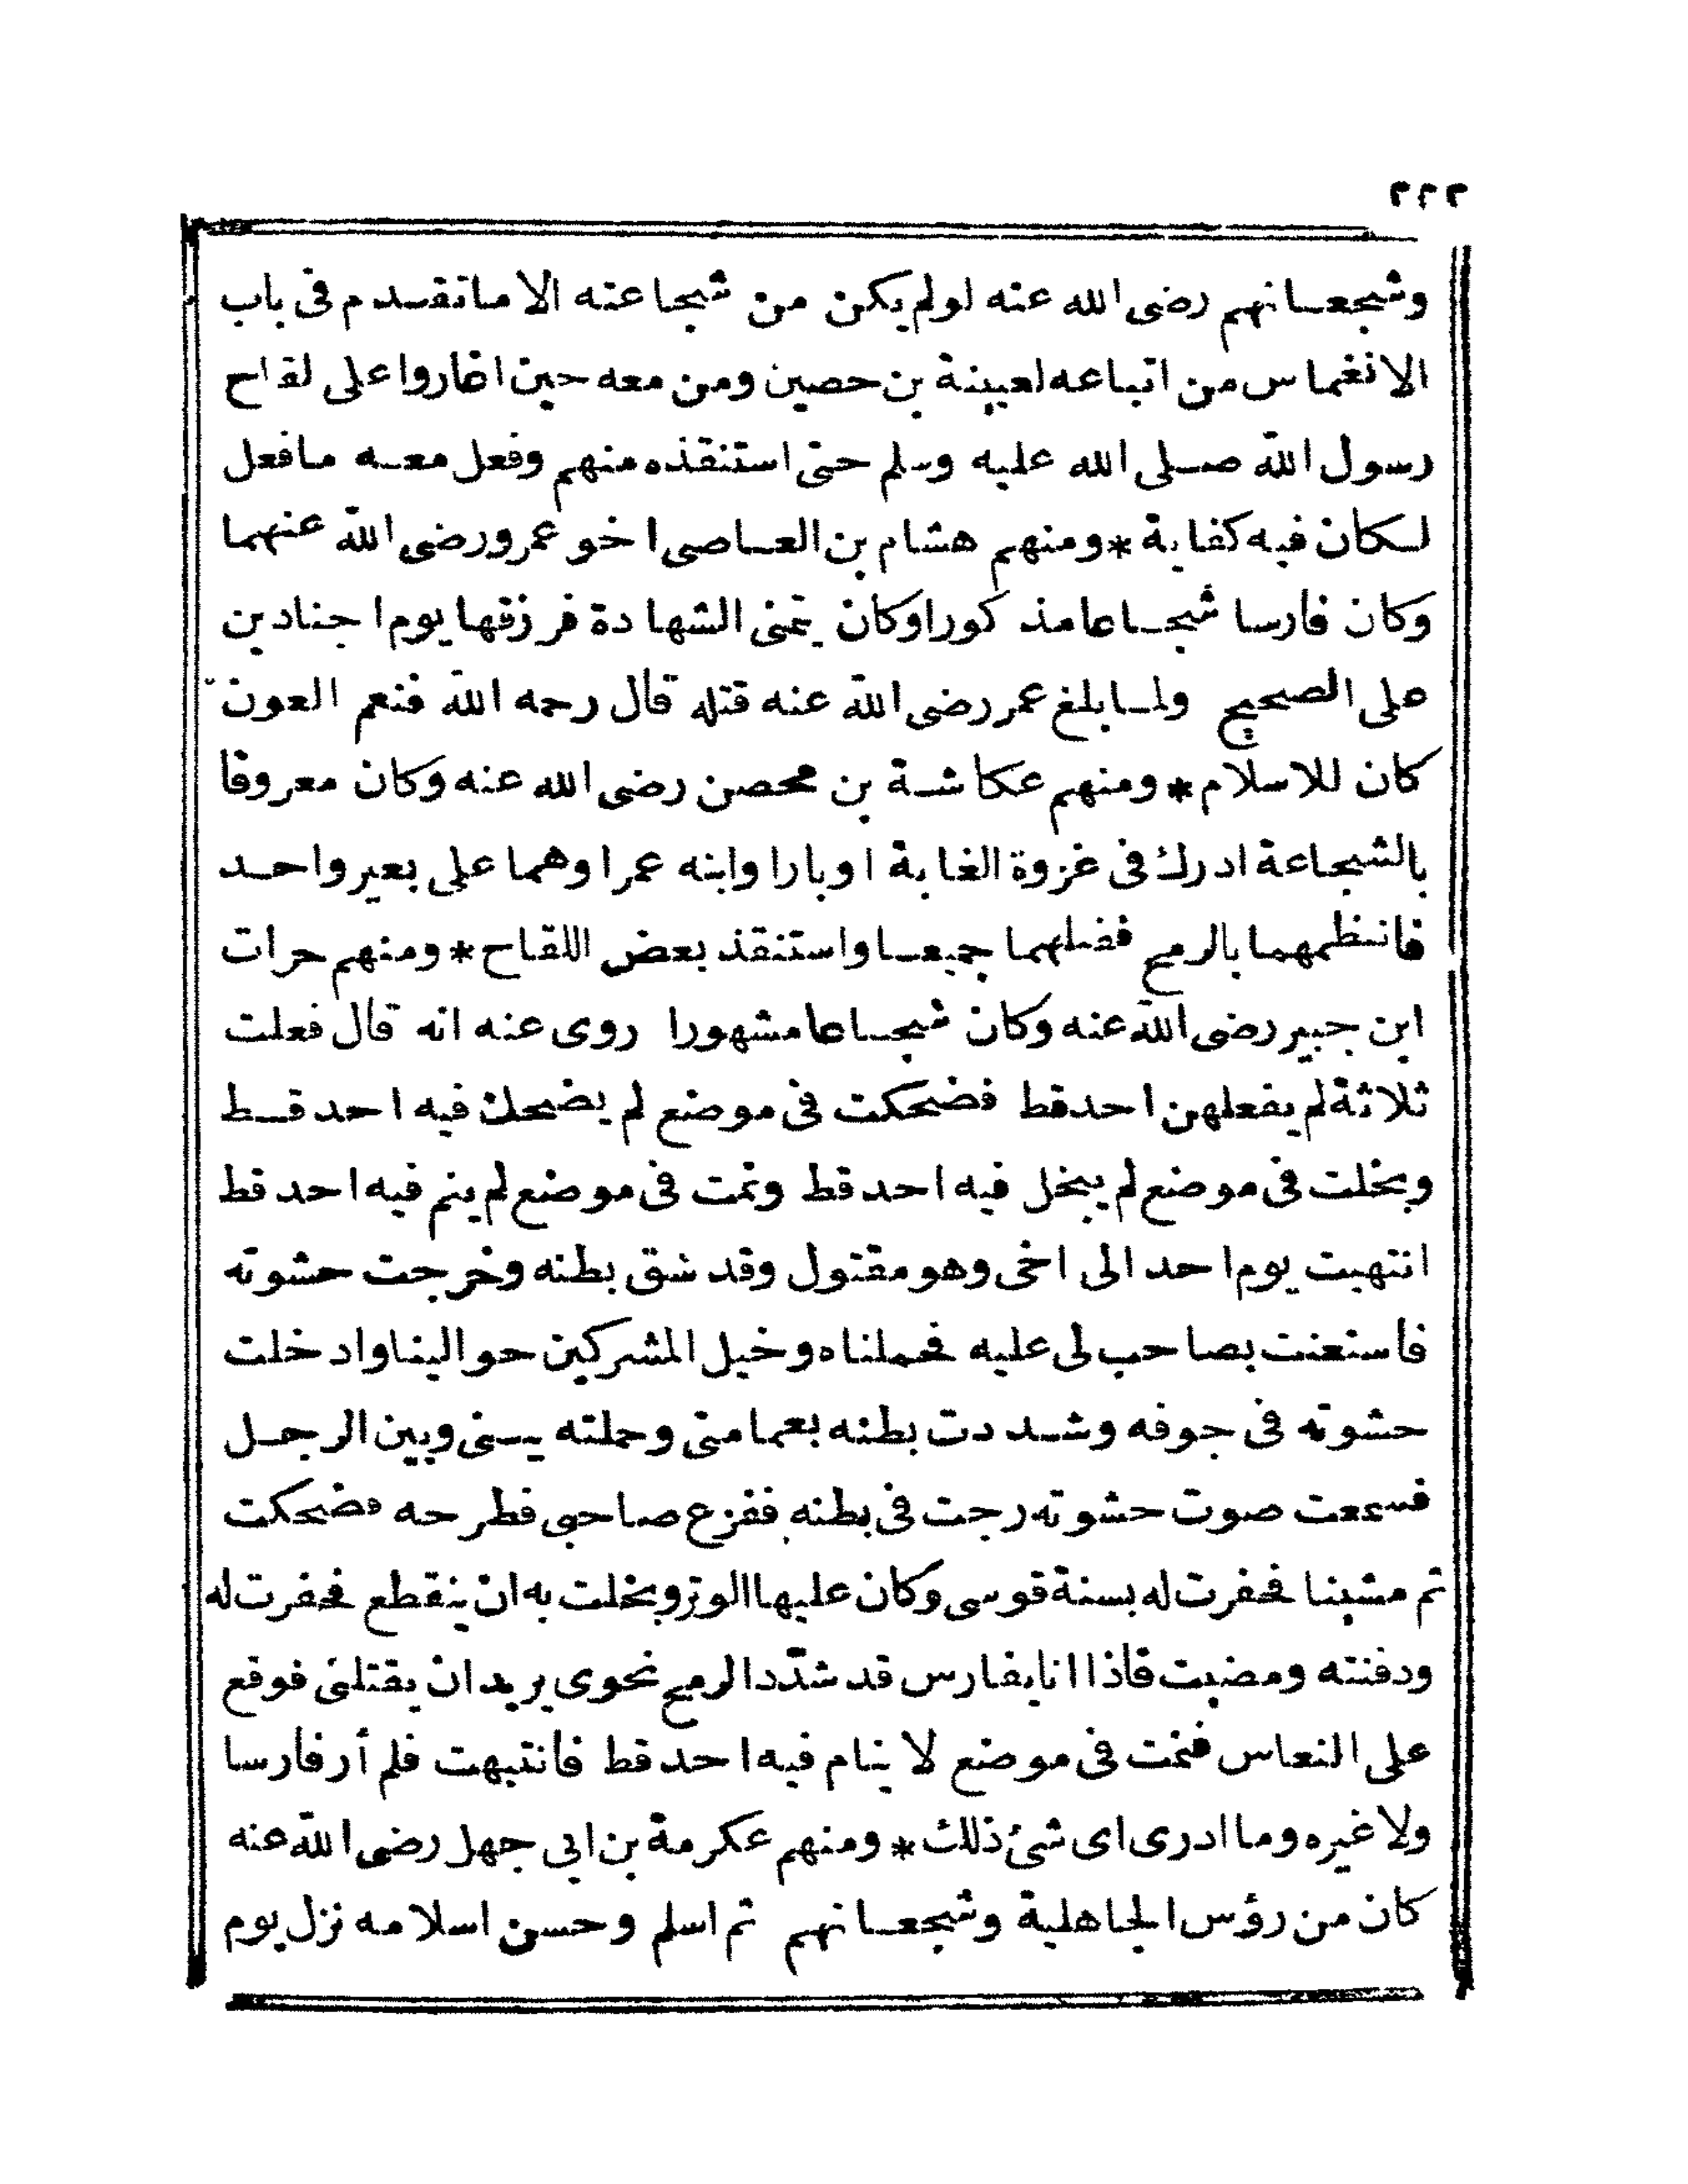 ٢٢٢
وشجعانهم رضى الله عنه لولم يكن من شجاعته الا ماتقدم فى باب
الانغماس من اتباعه لعيينة بن حصين ومن معه حين اغاروا على لقاح
رسول الله صلى الله عليه وسلم حتى استنقذه منهم وفعل معه مافعل
لكان فيه كفاية * ومنهم هشام بن العاصى اخو عمرو رضى الله عنهما
وكان فارسا شجاعا مذكورا وكان يتمنى الشهادة فرزقها يوم اجنادين
على الصحيح ولما بلغ عمر رضى الله عنه قتله قال رحمه الله فنعم العون
كان للاسلام * ومنهم عكاشة بن محصن رضى الله عنه وكان معروفا
بالشجاعة ادرك فى غزوة الغابة اوبارا وابنه عمرا وهما على بعير واحد
فانتظمهما بالرمح فقتلهما جميعا واستنقذ بعض اللقاح * ومنهم حرات
ابن جبير رضى الله عنه وكان شجاعا مشهورا روى عنه انه قال فعلت
ثلاثة لم يفعلهن احد قط فضحكت فى موضع لم يضحك فيه احد قط
وبخلت فى موضع لم يبخل فيه احد قط ونمت فى موضع لم ينم فيه احد قط
انتهيت يوم احد الى اخى وهو مقتول وقد شق بطنه وخرجت حشوته
فاستعنت بصاحب لى عليه فحملناه وخيل المشركين حوالينا وادخلت
حشوته فى جوفه وشددت بطنه بعمامتى وحملته بينى وبين الرجل
فسمعت صوت حشوته رجت فى بطنه ففزع صاحبى فطرحه فضحكت
ثم مشينا فحفرت له بسنة قوسى وكان عليها الوتر وبخلت به ان ينقطع فحفرت له
ودفنته ومضيت فاذا انا بفارس قد شدّد الرمح نحوى يريد ان يقتلنى فوقع
على النعاس فنمت فى موضع لا ينام فيه احد قط فانتبهت فلم أر فارسا
ولا غيره وما ادرى اى شئ ذلك * ومنهم عكرمة بن ابى جهل رضى الله عنه
كان من رؤس الجاهلية وشجعانهم ثم اسلم وحسن اسلامه نزل يوم